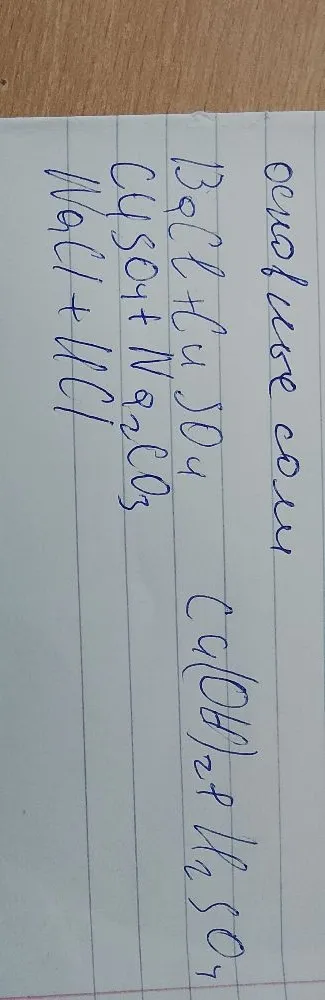 основные соли
BaCl + CuSO4 Cu(OH)2 + H2SO4
CuSO4 + Na2CO3
NaCl + HCl